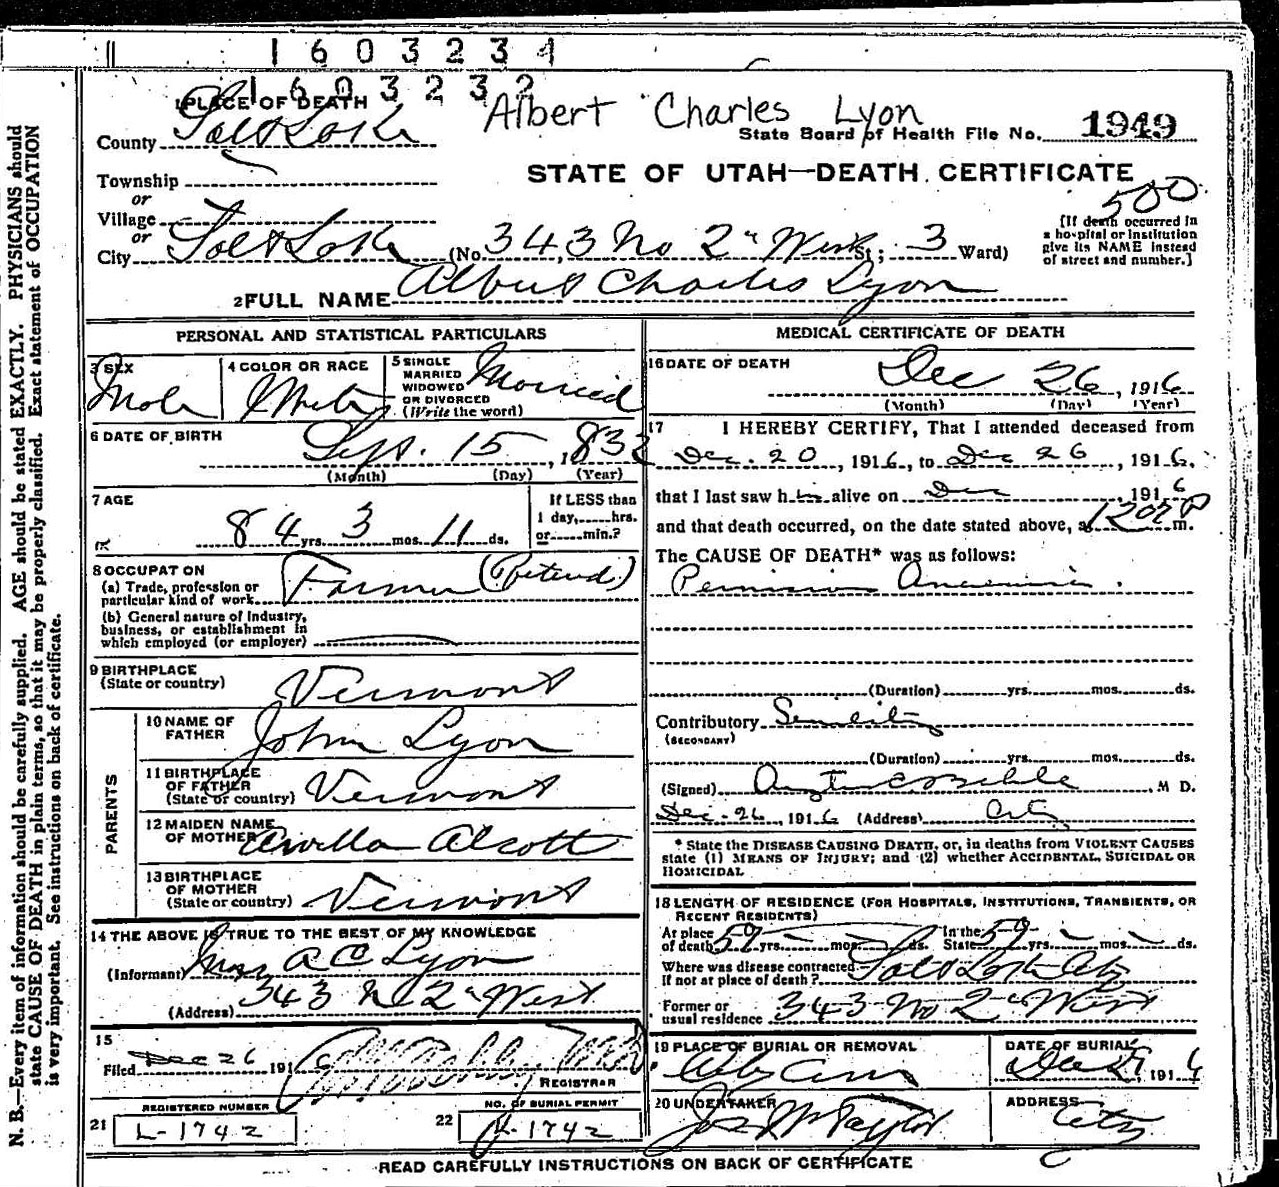 1603234
1603232
Albert Charles Lyon
1 PLACE OF DEATH
State Board of Health File No. 1949
County Salt Lake
STATE OF UTAH—DEATH CERTIFICATE
Township
or
500
Village
or
City Salt Lake (No. 343 No 2nd West St; 3 Ward)
[If death occurred in
a hospital or institution
give its NAME instead
of street and number.]
2 FULL NAME Albert Charles Lyon
PERSONAL AND STATISTICAL PARTICULARS
3 SEX
Male
4 COLOR OR RACE
White
5 SINGLE
MARRIED
WIDOWED
OR DIVORCED
(Write the word)
Married
6 DATE OF BIRTH
Sept. 15, 1832
(Month) (Day) (Year)
7 AGE
84 yrs. 3 mos. 11 ds.
If LESS than
1 day,......hrs.
or......min.?
8 OCCUPATION
(a) Trade, profession or
particular kind of work Farmer (Retired)
(b) General nature of industry,
business, or establishment in
which employed (or employer)
9 BIRTHPLACE
(State or country) Vermont
PARENTS
10 NAME OF
FATHER John Lyon
11 BIRTHPLACE
OF FATHER
(State or country) Vermont
12 MAIDEN NAME
OF MOTHER Alcott
13 BIRTHPLACE
OF MOTHER
(State or country) Vermont
14 THE ABOVE IS TRUE TO THE BEST OF MY KNOWLEDGE
(Informant) Mrs A C Lyon
(Address) 343 N 2nd West
15
Filed Dec 26 191
REGISTRAR
REGISTERED NUMBER
21 L-1742
NO. OF BURIAL PERMIT
22 L-1742
MEDICAL CERTIFICATE OF DEATH
16 DATE OF DEATH
Dec 26, 1916
(Month) (Day) (Year)
17 I HEREBY CERTIFY, That I attended deceased from
Dec. 20, 1916, to Dec 26, 1916,
that I last saw him alive on Dec 1916
and that death occurred, on the date stated above, at m.
The CAUSE OF DEATH* was as follows:
Pernicious Anaemia.
(Duration) yrs. mos. ds.
Contributory Senility
(SECONDARY)
(Duration) yrs. mos. ds.
(Signed) M D.
Dec. 26, 1916 (Address) City
* State the DISEASE CAUSING DEATH, or, in deaths from VIOLENT CAUSES
state (1) MEANS OF INJURY; and (2) whether ACCIDENTAL, SUICIDAL OR
HOMICIDAL
18 LENGTH OF RESIDENCE (FOR HOSPITALS, INSTITUTIONS, TRANSIENTS, OR
RECENT RESIDENTS)
At place
of death 59 yrs. – mos. – ds.
In the
State 59 yrs. – mos. – ds.
Where was disease contracted
If not at place of death? Salt Lake City
Former or
usual residence 343 No 2nd West
19 PLACE OF BURIAL OR REMOVAL
City Cem
DATE OF BURIAL
Dec 29, 1916
20 UNDERTAKER
Jos Wm Taylor
ADDRESS
City
READ CAREFULLY INSTRUCTIONS ON BACK OF CERTIFICATE
N. B.—Every item of information should be carefully supplied. AGE should be stated EXACTLY. PHYSICIANS should
state CAUSE OF DEATH in plain terms, so that it may be properly classified. Exact statement of OCCUPATION
is very important. See instructions on back of certificate.